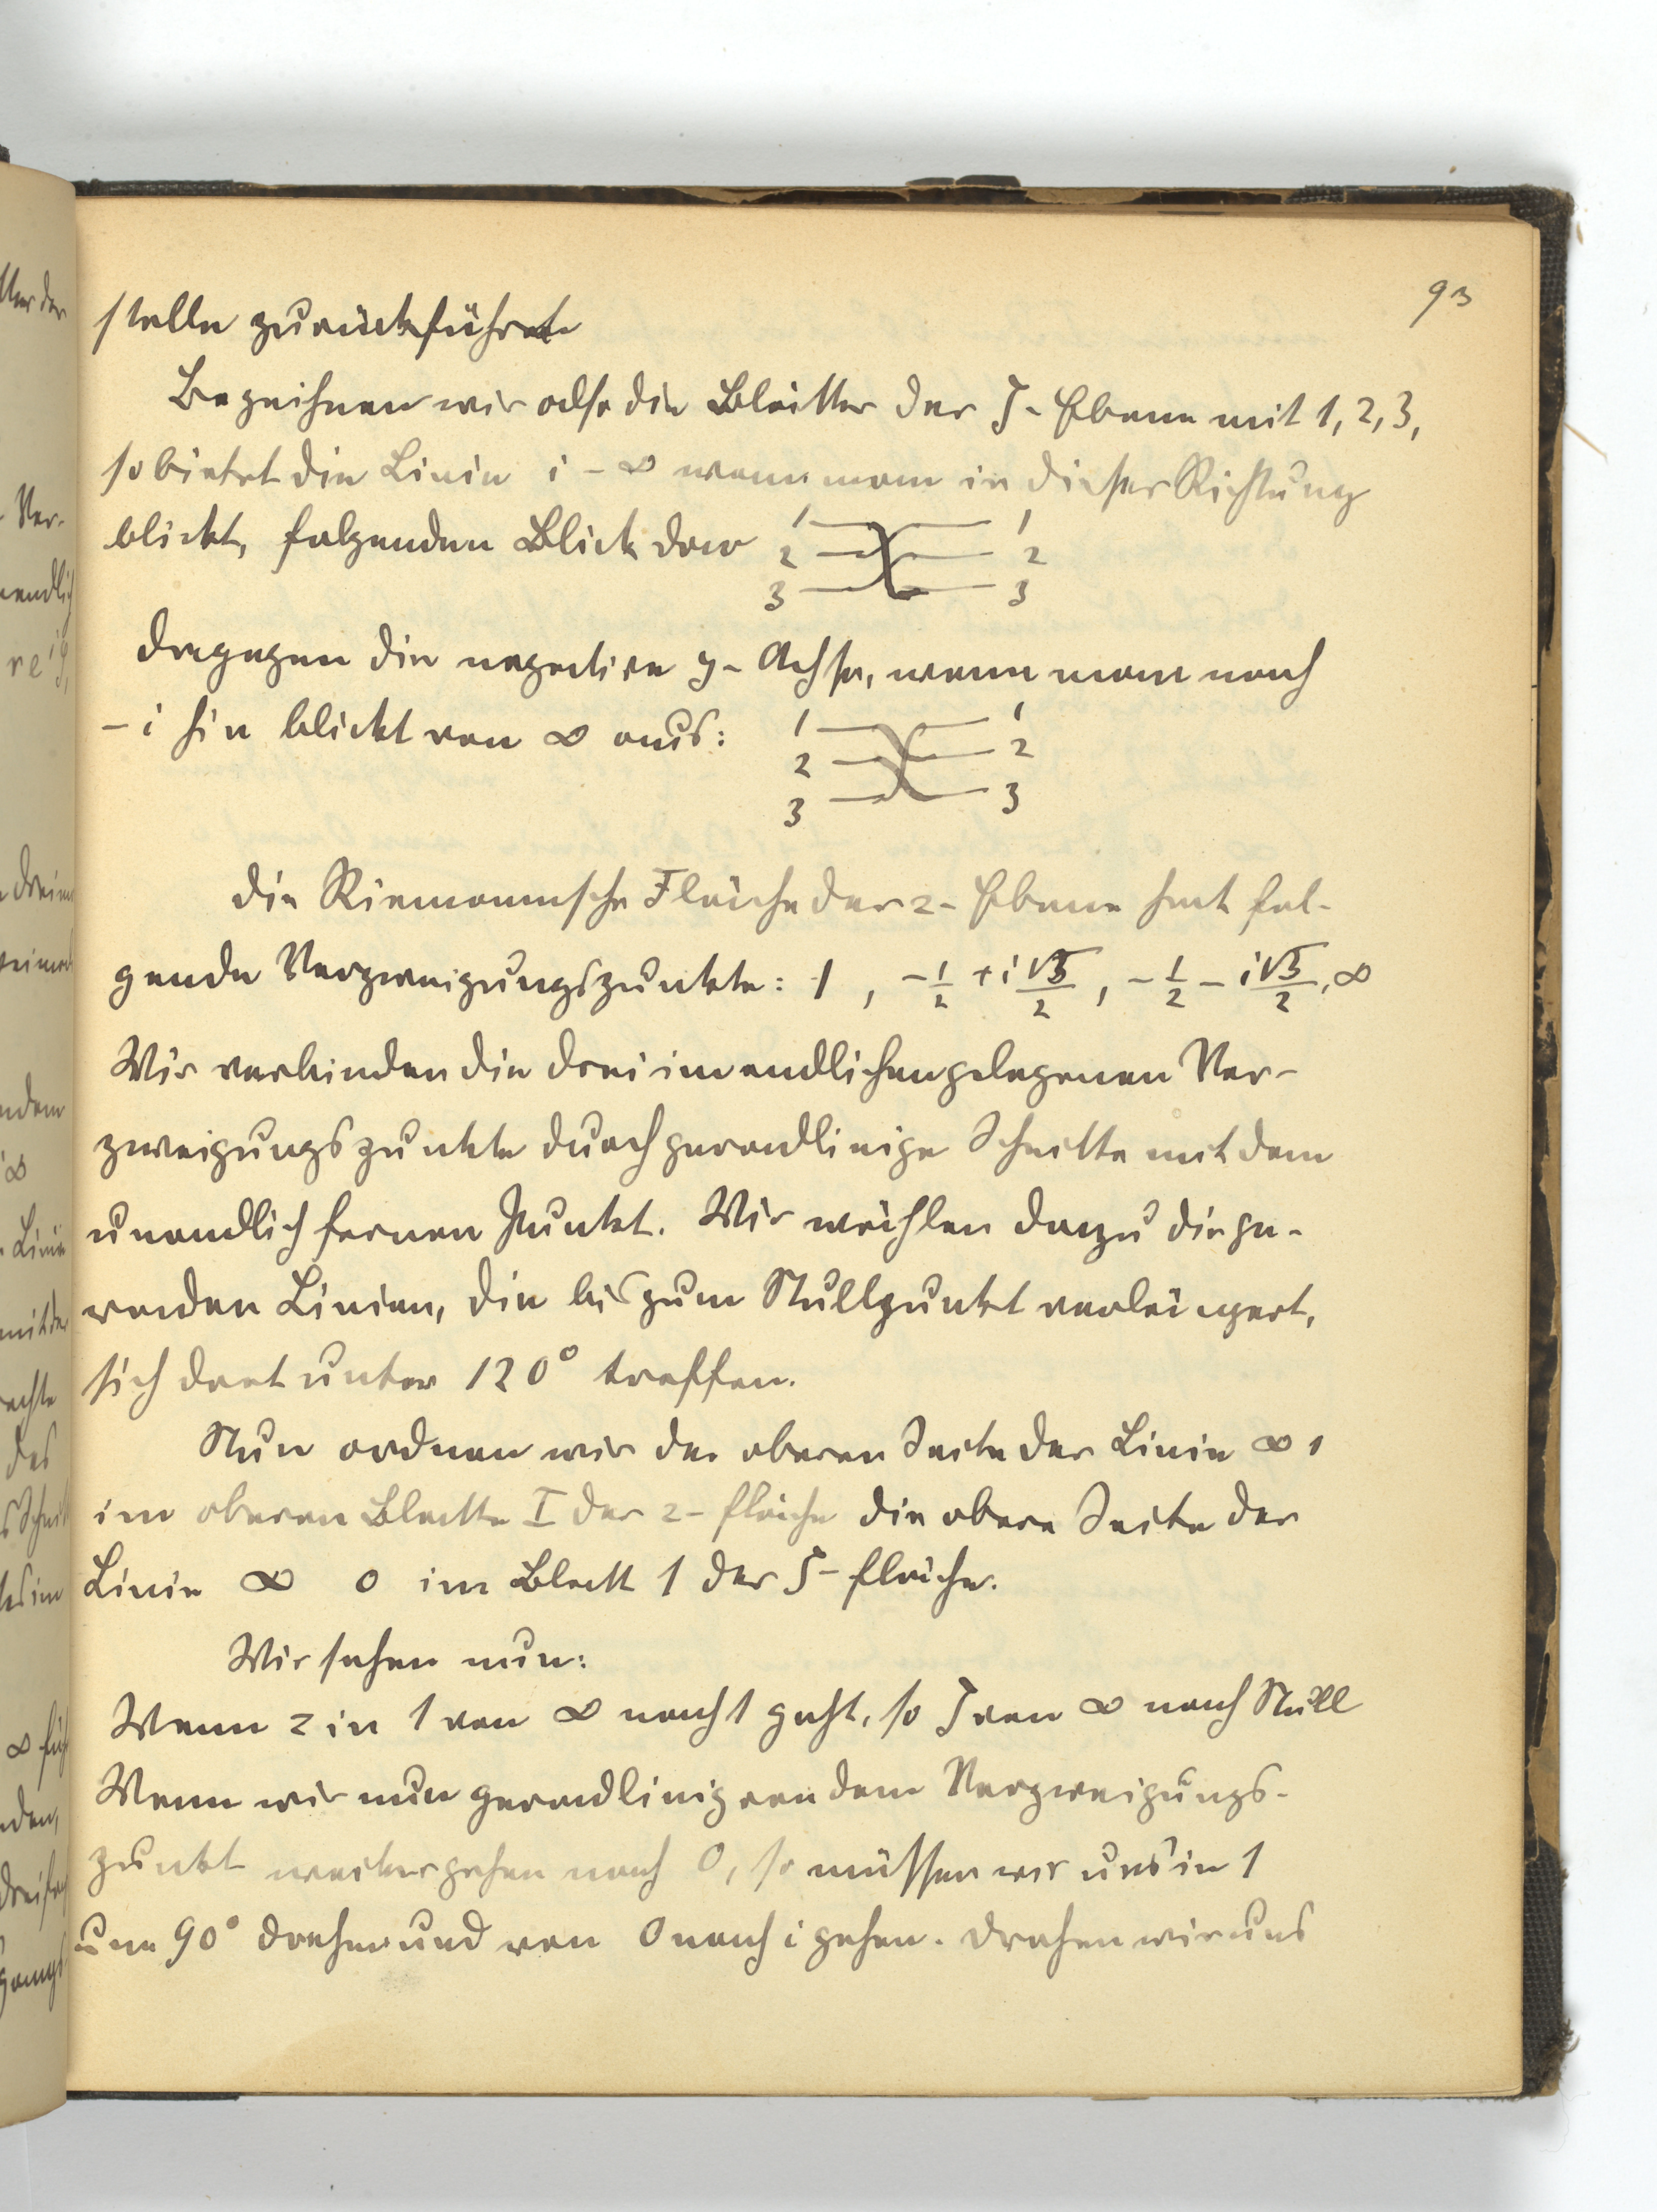 93
stelle zurückführt
Bezeichnen wir also die Blätter der ζ-Ebene mit 1, 2, 3,
so bietet die Linie i - ∞ wenn man in dieser Richtung
blickt, folgenden Blick dar 1 1
2 2
3 3
dagegen die negative y-Achse, wenn man nach
- i hin blickt von ∞ aus: 1 1
2 2
3 3
die Riemannsche Fläche der z-Ebene hat fol-
gende Verzweigungspunkte: 1, -1/2 + i√3/2, -1/2 - i√3/2, ∞
Wir verbinden die drei im endlichen gelegenen Ver-
zweigungspunkte durch geradlinige Schnitte mit dem
unendlich fernen Punkt. Wir wählen dazu die ge-
raden Linien, die bis zum Nullpunkt verlängert,
sich dort unter 120° treffen.
Nun ordnen wir der oberen Seite der Linie ∞ 1
im oberen Blatte I der z-fläche die obere Seite der
Linie ∞ 0 im Blatt 1 der ζ-fläche.
Wir sehen nun:
Wenn z in 1 von ∞ nach 1 geht, so ζ von ∞ nach Null
Wenn wir nun geradlinig von dem Verzweigungs-
punkt weitergehen nach 0, so müssen wir uns in 1
um 90° drehen und von 0 nach i gehen. Drehen wir uns